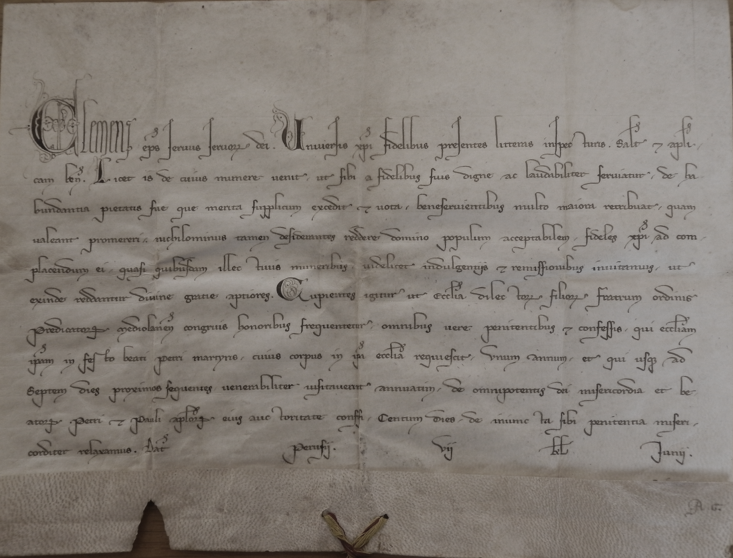 Clemens ep̄s servus servorꝝ dei. Universis xp̄i fidelibus presentes litteras inspecturis. Salt̄ ⁊ apl̄i-
cam ben̄. Licet is de cuius munere venit, ut sibi a fidelibus suis digne ac laudabiliter serviatur, de ha-
bundantia pietatis sue que merita supplicum excedit ⁊ vota, beneservientibus multo maiora retribuat, quam
valeant promereri, nichilominus tamen desiderantes reddere domino populum acceptabilem, fideles xp̄i ad com-
placendum ei, quasi quibusdam illectivis muneribus, videlicet indulgentiis ⁊ remissionibus invitamus, ut
exinde reddantur divine gratie aptiores. Cupientes igitur ut ecclīa dilectorꝝ filiorꝝ fratrum ordinis
Predicatorꝝ Mediolanen̄ congruis honoribus frequentetur, omnibus vere penitentibus ⁊ confessis, qui ecclīam
ip̄am in festo beati Petri martyris, cuius corpus in ip̄a ecclīa requiescit, unum annum, et qui usqꝫ ad
septem dies proximos sequentes venerabiliter visitaverint annuatim, de omnipotentis dei misericordia et be-
atorꝝ Petri ⁊ Pauli apl̄orꝝ eius auctoritate confisi, Centum dies, de iniuncta sibi penitentia miseri-
corditer relaxamus. Dat̄ Perusii. vij kl̄ Junij.
A. c.